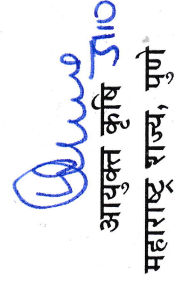 5/10
आयुक्त कृषि
महाराष्ट्र राज्य, पुणे